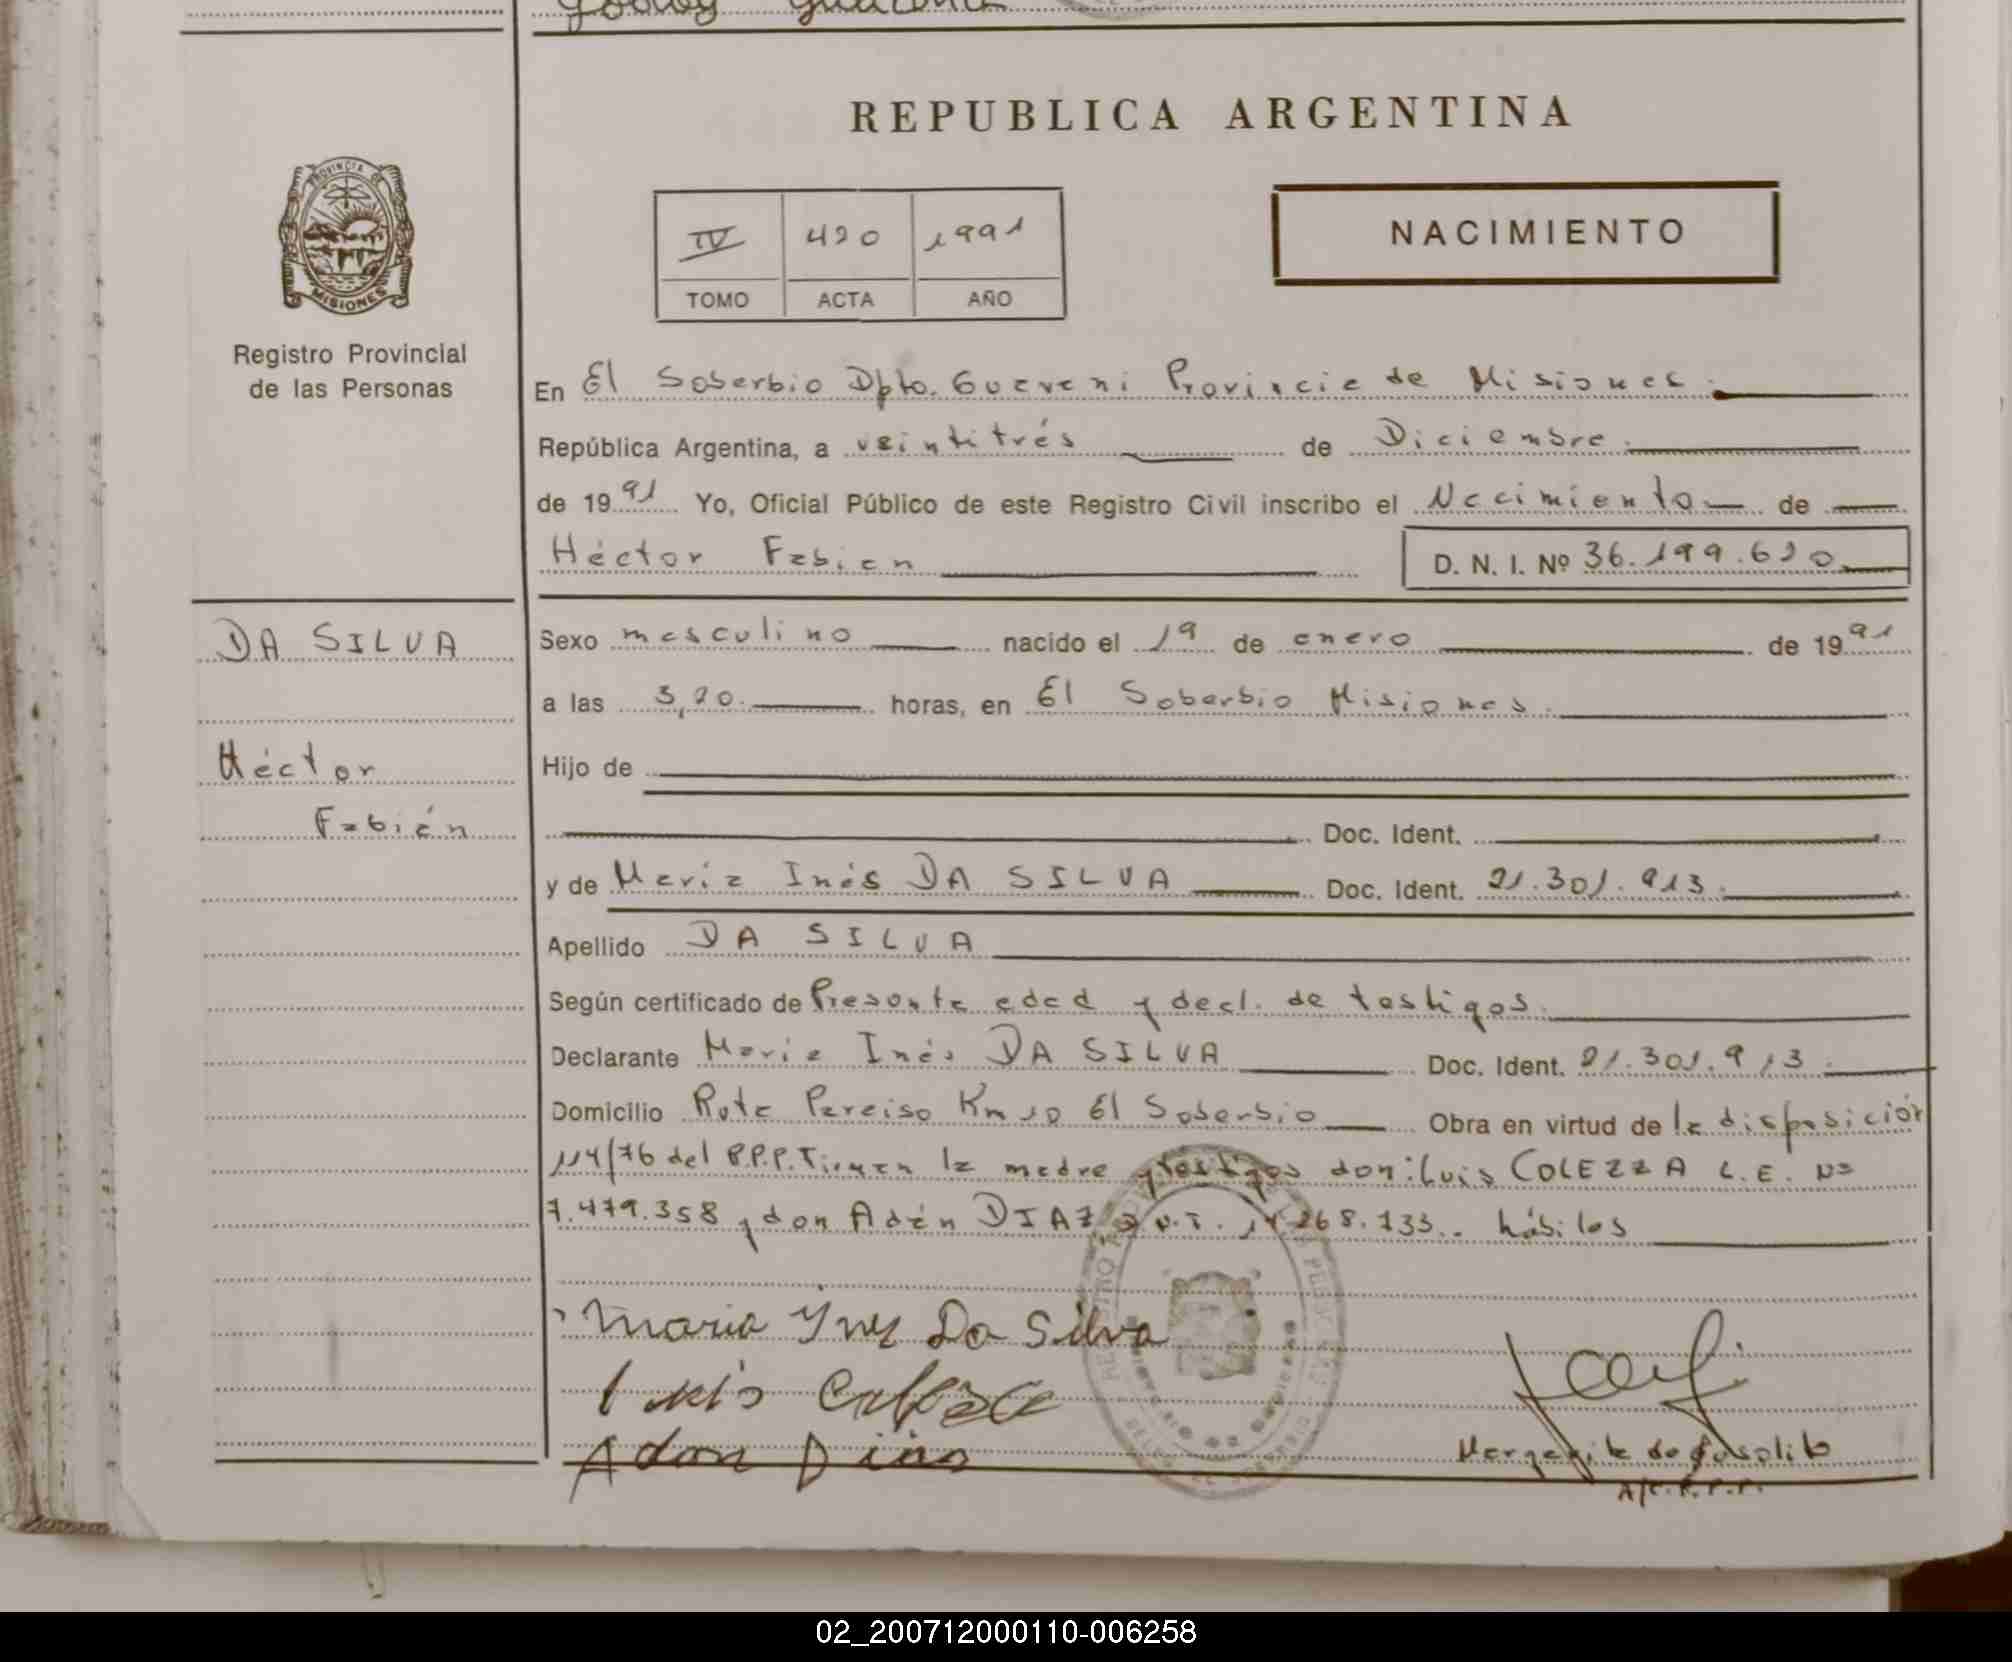 Godoy
REPUBLICA ARGENTINA
PROVINCIA DE
MISIONES
Registro Provincial
de las Personas
IV 420 1991
TOMO ACTA AÑO
NACIMIENTO
En El Soberbio Dpto. Guarani Provincia de Misiones.
República Argentina, a veintitrés de Diciembre.
de 1991 Yo, Oficial Público de este Registro Civil inscribo el Nacimiento de
Héctor Fabian D. N. I. Nº 36.199.620
DA SILVA
Héctor
Fabián
Sexo masculino nacido el 19 de enero de 1991
a las 3,20. horas, en El Soberbio Misiones.
Hijo de
Doc. Ident.
y de María Inés DA SILVA Doc. Ident. 21.301.913.
Apellido DA SILVA
Según certificado de Presonta edad y decl. de testigos.
Declarante María Inés DA SILVA Doc. Ident. 21.301.913.
Domicilio Ruta Paraiso Km 10 El Soberbio Obra en virtud de la disposición
114/76 del P.P.P. Firman la madre y testigos don: Luis COLEZZA L.E. Nº
7.479.358 y don Adán DIAZ 268.733.. hábiles
Maria Ynes Da Silva
Luis
Adan Dias
Margarita de
A/C.R.P.P.
02_200712000110-006258